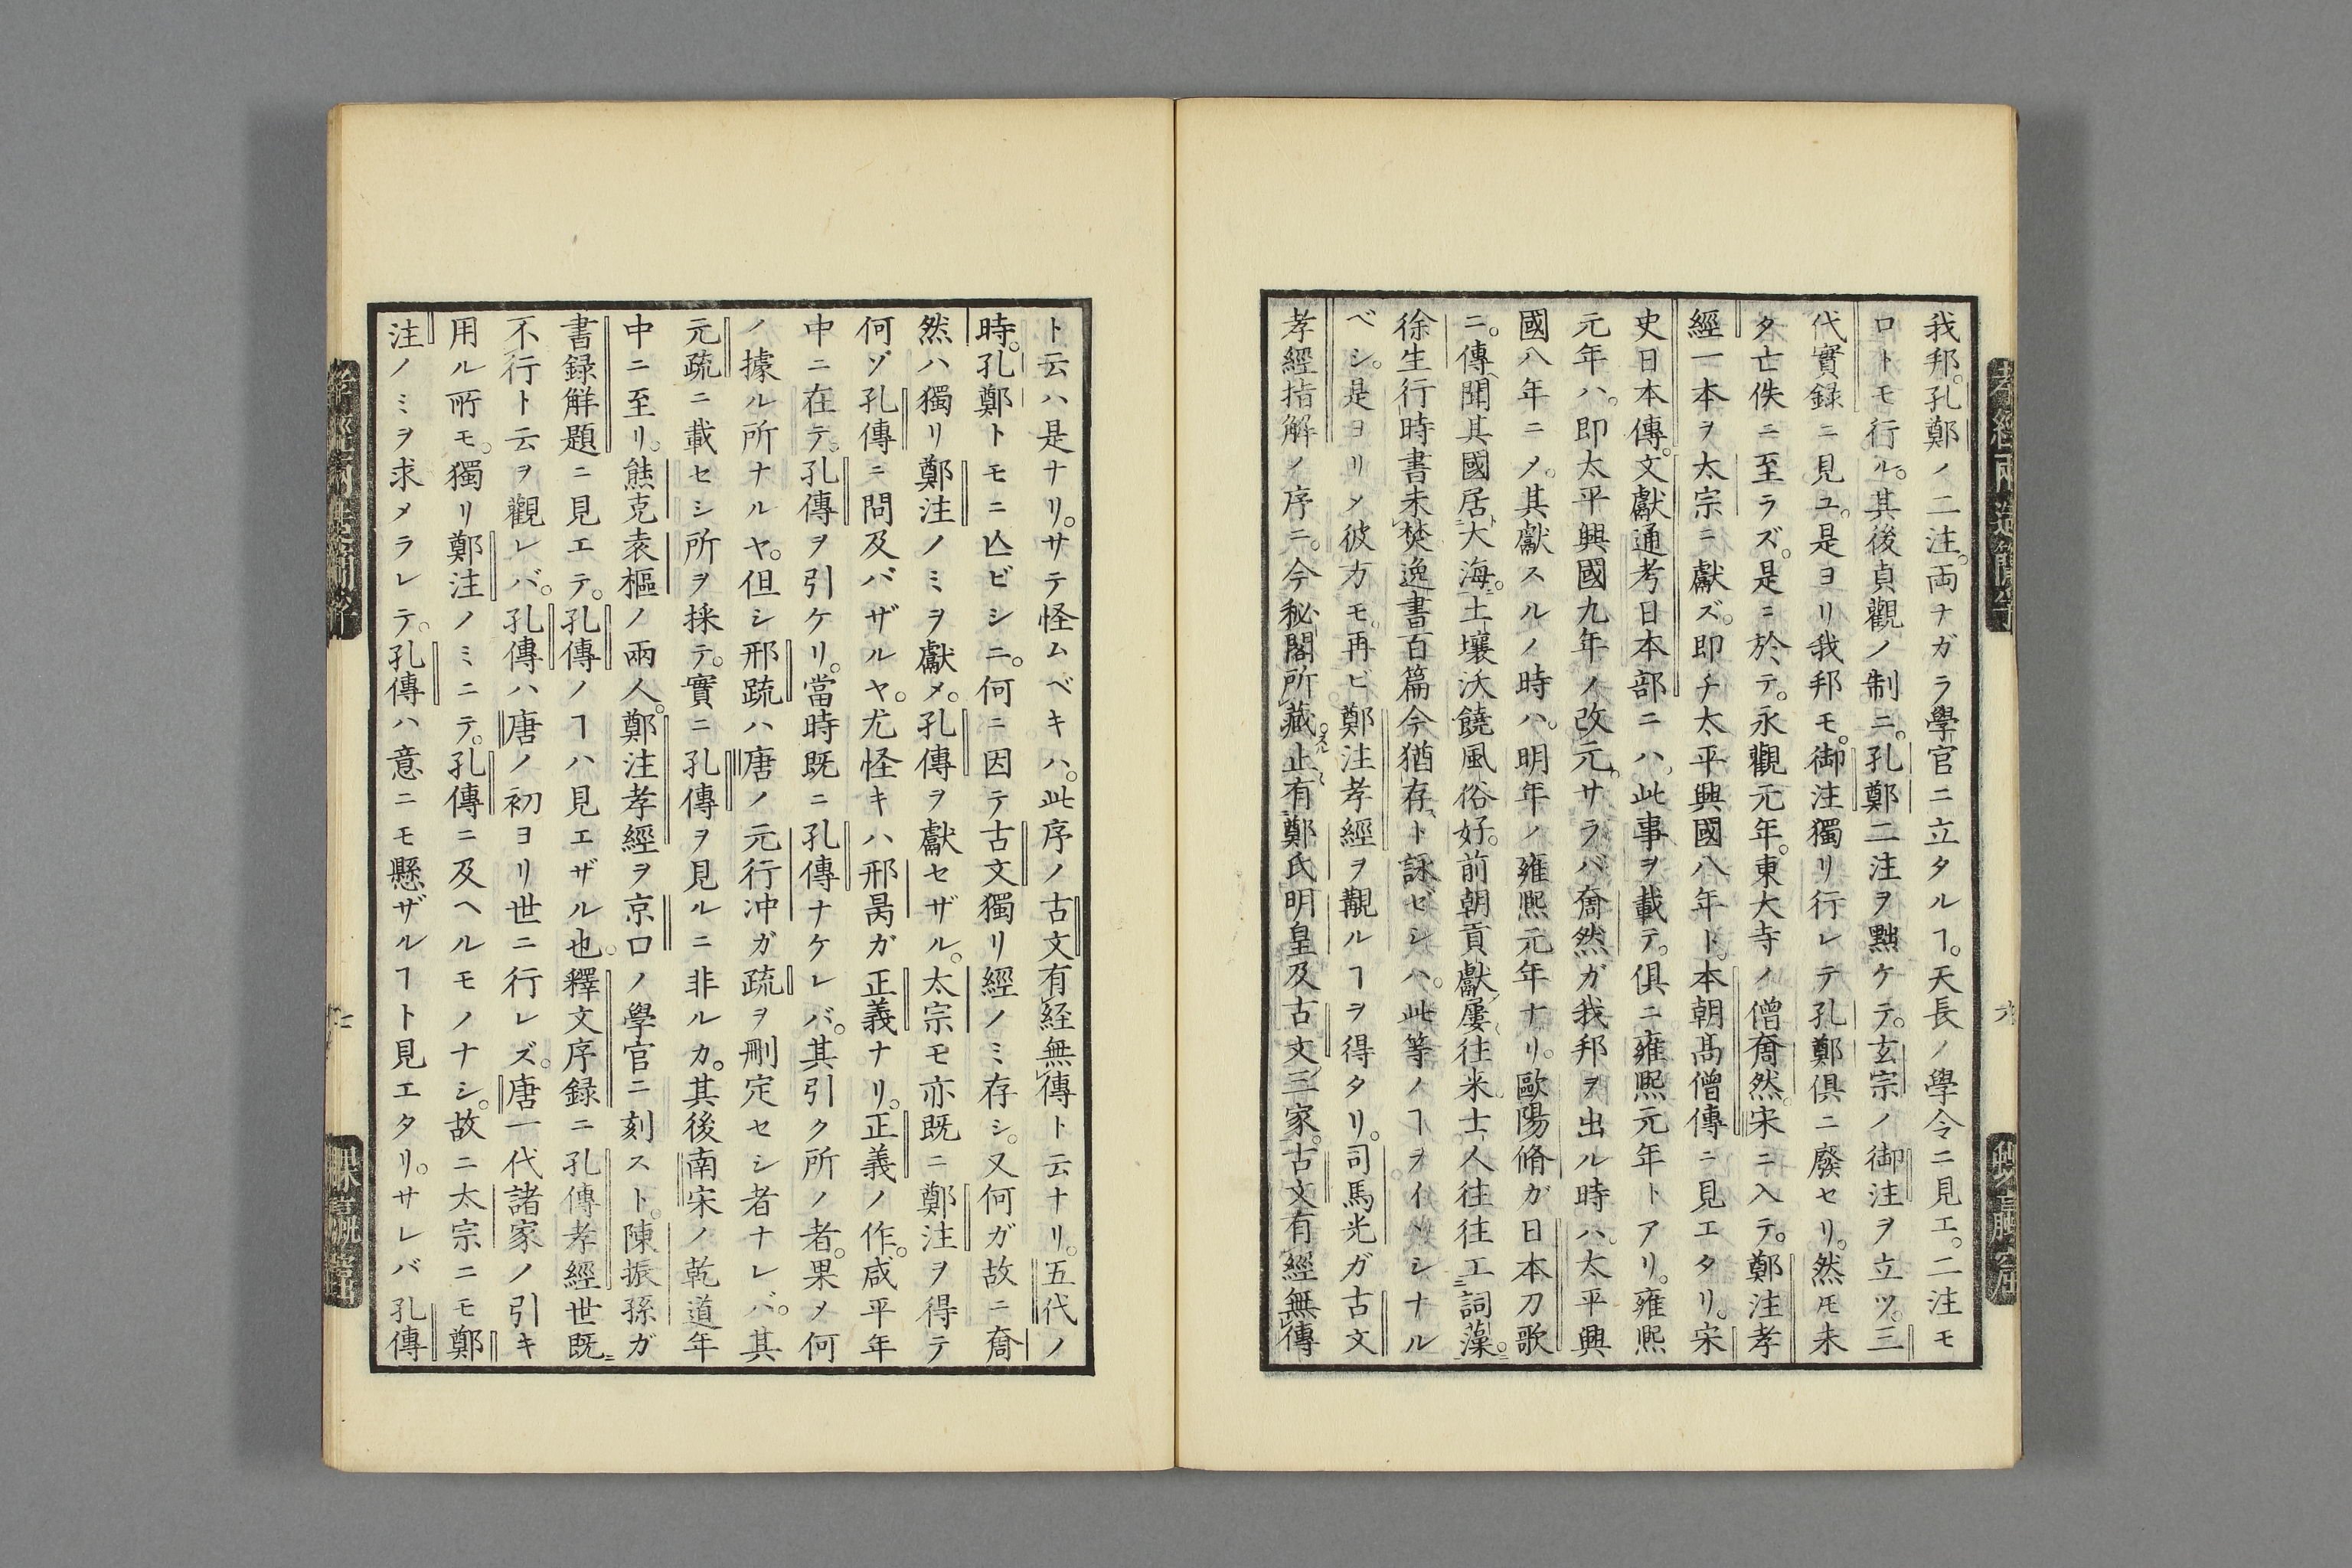 我邦。孔鄭ノ二注。両ナガラ學官ニ立タルヿ。天長ノ學令ニ見エ。二注モ
ロトモ行ル。其後貞觀ノ制ニ。孔鄭二注ヲ黜ケテ。玄宗ノ御注ヲ立ツ。三
代實録ニ見ユ。是ヨリ我邦モ。御注獨リ行レテ孔鄭俱ニ廢セリ。然𪜈未
タ亡佚ニ至ラズ。是ニ於テ。永觀元年。東大寺ノ僧奝然。宋ニ入テ。鄭注孝
經一本ヲ太宗ニ獻ズ。即チ太平興國八年ト。本朝高僧傳ニ見エタリ。宋
史日本傳。文獻通考日本部ニハ。此事ヲ載テ。俱ニ雍熙元年トアリ。雍熙
元年ハ。即太平興國九年ノ改元。サラバ奝然ガ我邦ヲ出ル時ハ。太平興
國八年ニメ。其獻スルノ時ハ。明年ノ雍熙元年ナリ。歐陽脩ガ日本刀歌
ニ。傳聞其國居大海。土壤沃饒風俗好。前朝貢獻屢往來士人往往工詞藻。
徐生行時書未焚逸書百篇今猶存ト詠ゼシハ。此等ノヿヲイヽシナル
ベシ。是ヨリメ彼方モ。再ビ鄭注孝經ヲ覩ルヿヲ得タリ。司馬光ガ古文
孝經指解ノ序ニ。今秘閣所藏止有鄭氏明皇及古文三家。古文有經無傳
ト云ハ是ナリ。サテ怪ムベキハ。此序ノ古文有経無傳ト云ナリ。五代ノ
時。孔鄭トモニ亾ビシニ。何ニ因テ古文獨リ經ノミ存シ。又何ガ故ニ奝
然ハ獨リ鄭注ノミヲ獻メ。孔傳ヲ獻セザル。太宗モ亦既ニ鄭注ヲ得テ
何ゾ孔傳ニ問及バザルヤ。尤怪キハ邢昺ガ正義ナリ。正義ノ作。咸平年
中ニ在テ。孔傳ヲ引ケリ。當時既ニ孔傳ナケレバ。其引ク所ノ者。果メ何
ノ據ル所ナルヤ。但シ邢疏ハ唐ノ元行冲ガ疏ヲ刪定セシ者ナレバ。其
元疏ニ載セシ所ヲ採テ。實ニ孔傳ヲ見ルニ非ルカ。其後南宋ノ乾道年
中ニ至リ。熊克袁樞ノ兩人。鄭注孝經ヲ京口ノ學官ニ刻スト。陳振孫ガ
書録解題ニ見エテ。孔傳ノヿハ見エザル也。釋文序録ニ孔傳孝經世既
不行ト云ヲ觀レバ。孔傳ハ唐ノ初ヨリ世ニ行レズ。唐一代諸家ノ引キ
用ル所モ。獨リ鄭注ノミニテ。孔傳ニ及ヘルモノナシ。故ニ太宗ニモ鄭
注ノミヲ求メラレテ。孔傳ハ意ニモ懸ザルヿト見エタリ。サレバ孔傳